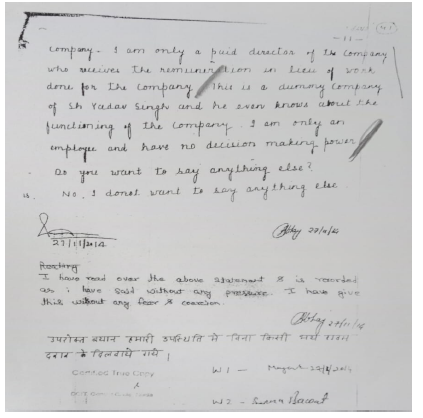 - 11 -
company. I am only a paid director of the Company
who receives the remuneration in lieu of work
done for the Company. This is a dummy company
of Sh Yadav Singh and he even knows about the
functioning of the Company. I am only an
employee and have no decision making power
Do you want to say anything else?
No. I donot want to say anything else
27/11/2014
I have read over the above statement & is recorded
as i have said without any pressure. I have give
this without any fear & coercion.
उपरोक्त बयान हमारी उपस्थिति में बिना किसी भय
दबाव के दिलवाये गये।
W1 -
W2 -